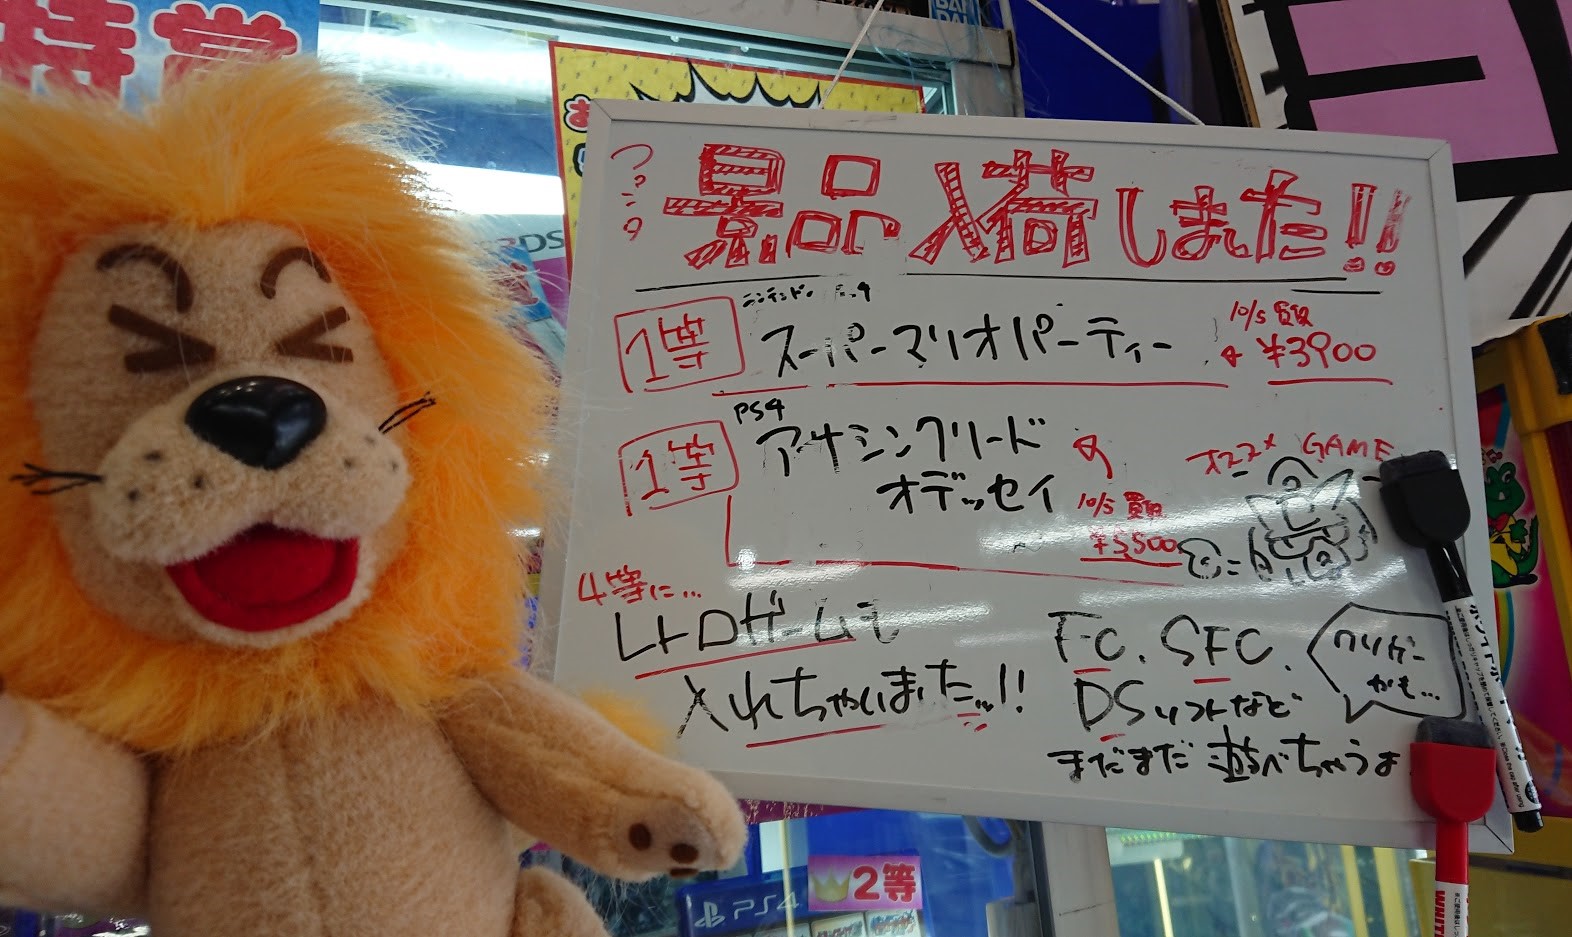 特賞
BAN
DAI
3DS
ついに
景品入荷しました!!
1等
スーパーマリオパーティー
10/5 買取
¥3900
1等
PS4
アサシンクリード
オデッセイ
10/5 買取
¥5500
オススメ GAME
4等に...
レトロゲームも
入れちゃいましたッ!!
FC. SFC.
DSソフトなど
まだまだ遊べちゃうよ
クソゲー
かも...
PS4
2等